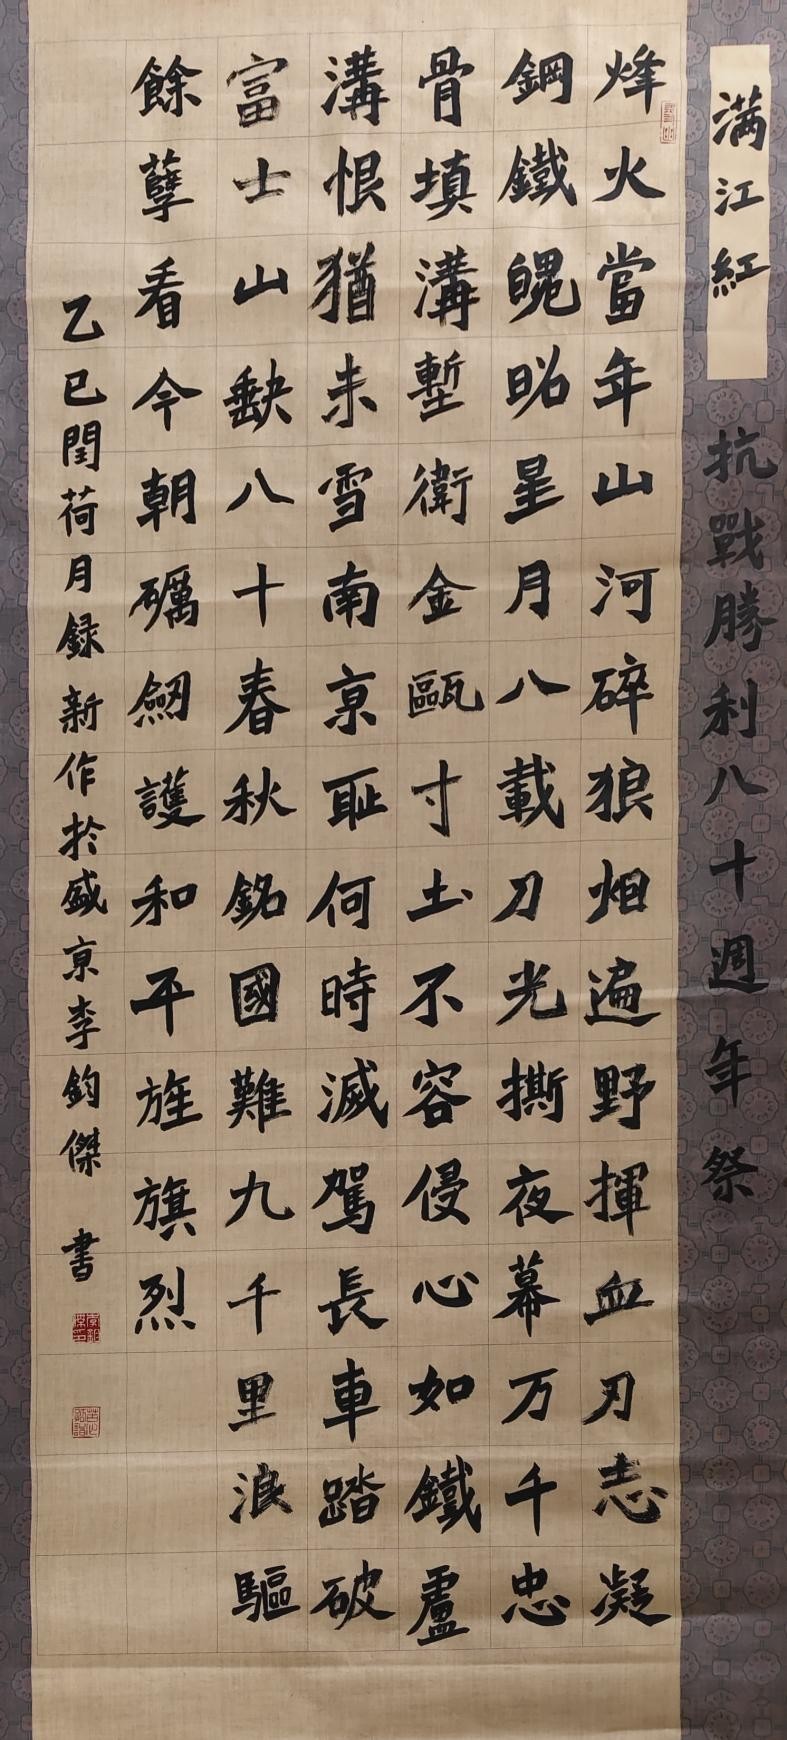 满江紅
抗戰勝利八十週年祭
烽火當年山河碎狼烟遍野揮血刃志凝
鋼鐵魄昭星月八載刀光撕夜幕万千忠
骨填溝塹衛金甌寸土不容侵心如鐵盧
溝恨猶未雪南京恥何時滅駕長車踏破
富士山缺八十春秋銘國難九千里浪驅
餘孽看今朝礪劍護和平旌旗烈
乙巳閏荷月録新作於盛京李鈞傑書